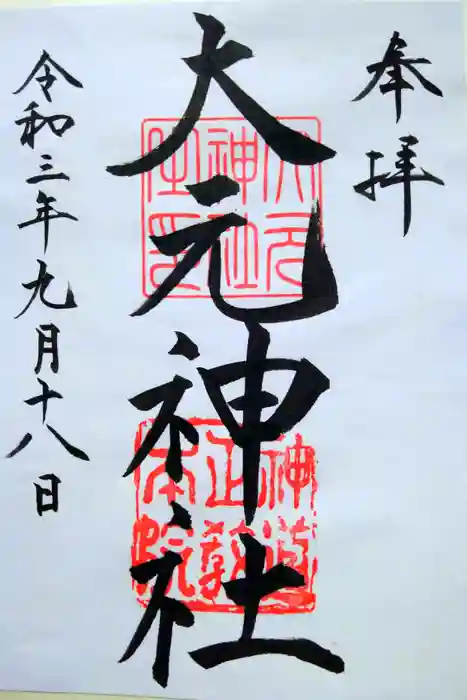 奉拝
大元神社
令和三年九月十八日
大元
神社
之印
神道
正教
本院